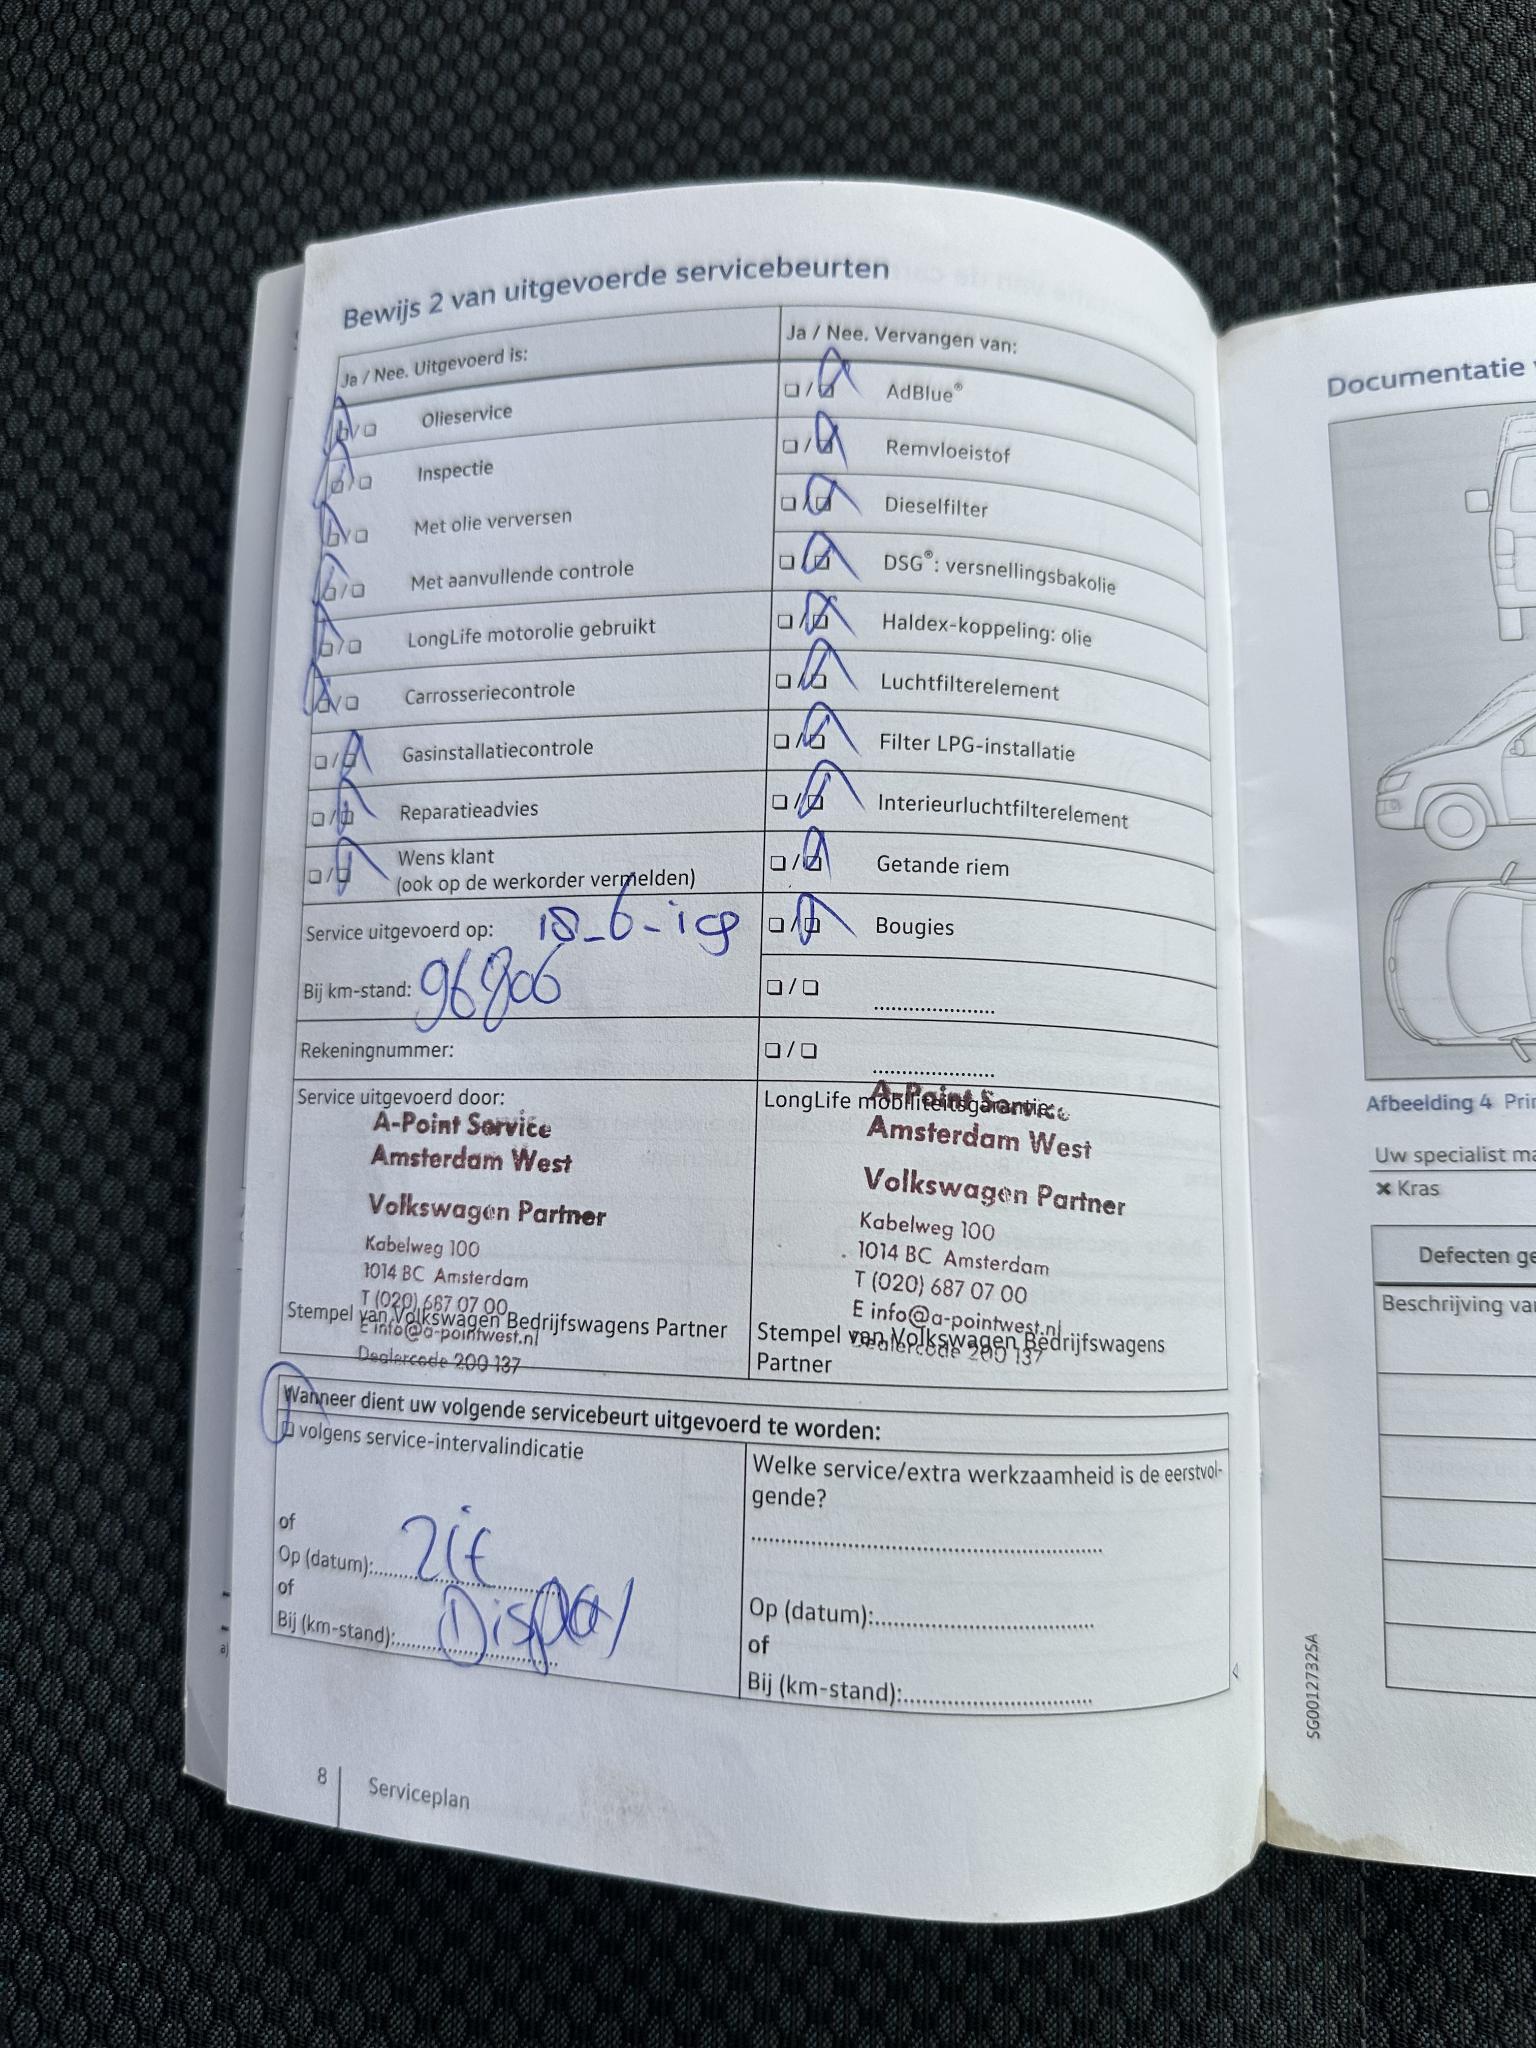 Bewijs 2 van uitgevoerde servicebeurten
Ja / Nee. Uitgevoerd is:
Olieservice
Inspectie
Met olie verversen
Met aanvullende controle
LongLife motorolie gebruikt
Carrosseriecontrole
Gasinstallatiecontrole
Reparatieadvies
Wens klant
(ook op de werkorder vermelden)
Service uitgevoerd op:
Bij km-stand:
Rekeningnummer:
Ja / Nee. Vervangen van:
AdBlue®
Remvloeistof
Dieselfilter
DSG®: versnellingsbakolie
Haldex-koppeling: olie
Luchtfilterelement
Filter LPG-installatie
Interieurluchtfilterelement
Getande riem
Bougies
Service uitgevoerd door:
A-Point Service
Amsterdam West
Volkswagen Partner
Kabelweg 100
1014 BC Amsterdam
T (020) 687 07 00
E info@a-pointwest.nl
Dealercode 200 137
Stempel van Volkswagen Bedrijfswagens Partner
LongLife mobiliteitsgarantie:
A-Point Service
Amsterdam West
Volkswagen Partner
Kabelweg 100
1014 BC Amsterdam
T (020) 687 07 00
E info@a-pointwest.nl
Dealercode 200 137
Stempel van Volkswagen Bedrijfswagens
Partner
Wanneer dient uw volgende servicebeurt uitgevoerd te worden:
volgens service-intervalindicatie
of
Op (datum): Zie
of
Bij (km-stand): Display
Welke service/extra werkzaamheid is de eerstvol-
gende?
Op (datum):
of
Bij (km-stand):
8 Serviceplan
Documentatie
Afbeelding 4
Uw specialist
Kras
Defecten
Beschrijving
SG0012732SA